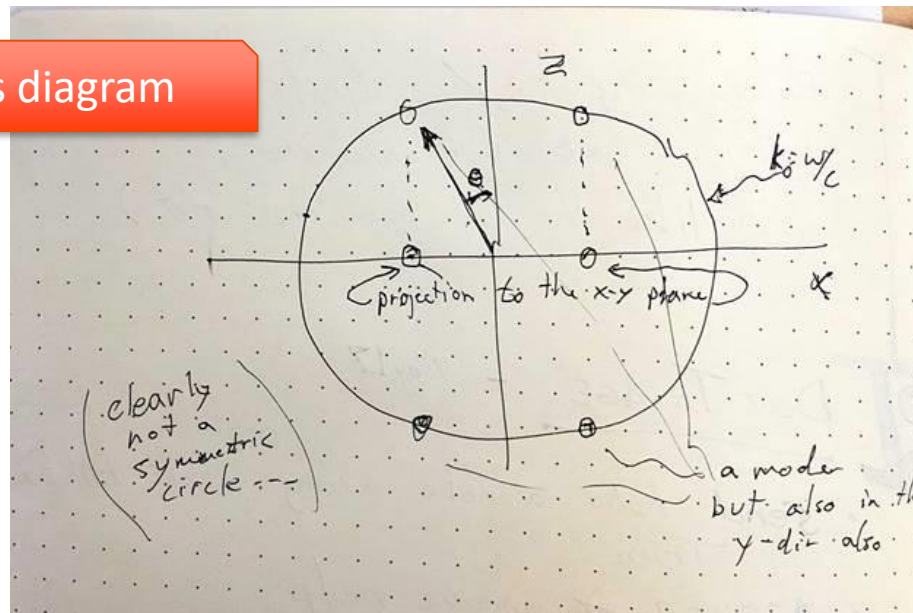 s diagram
z
k₀ = w/c
θ
projection to the x-y plane
x
clearly
not a
symmetric
circle ---
a moder
but also in th
y-dir also